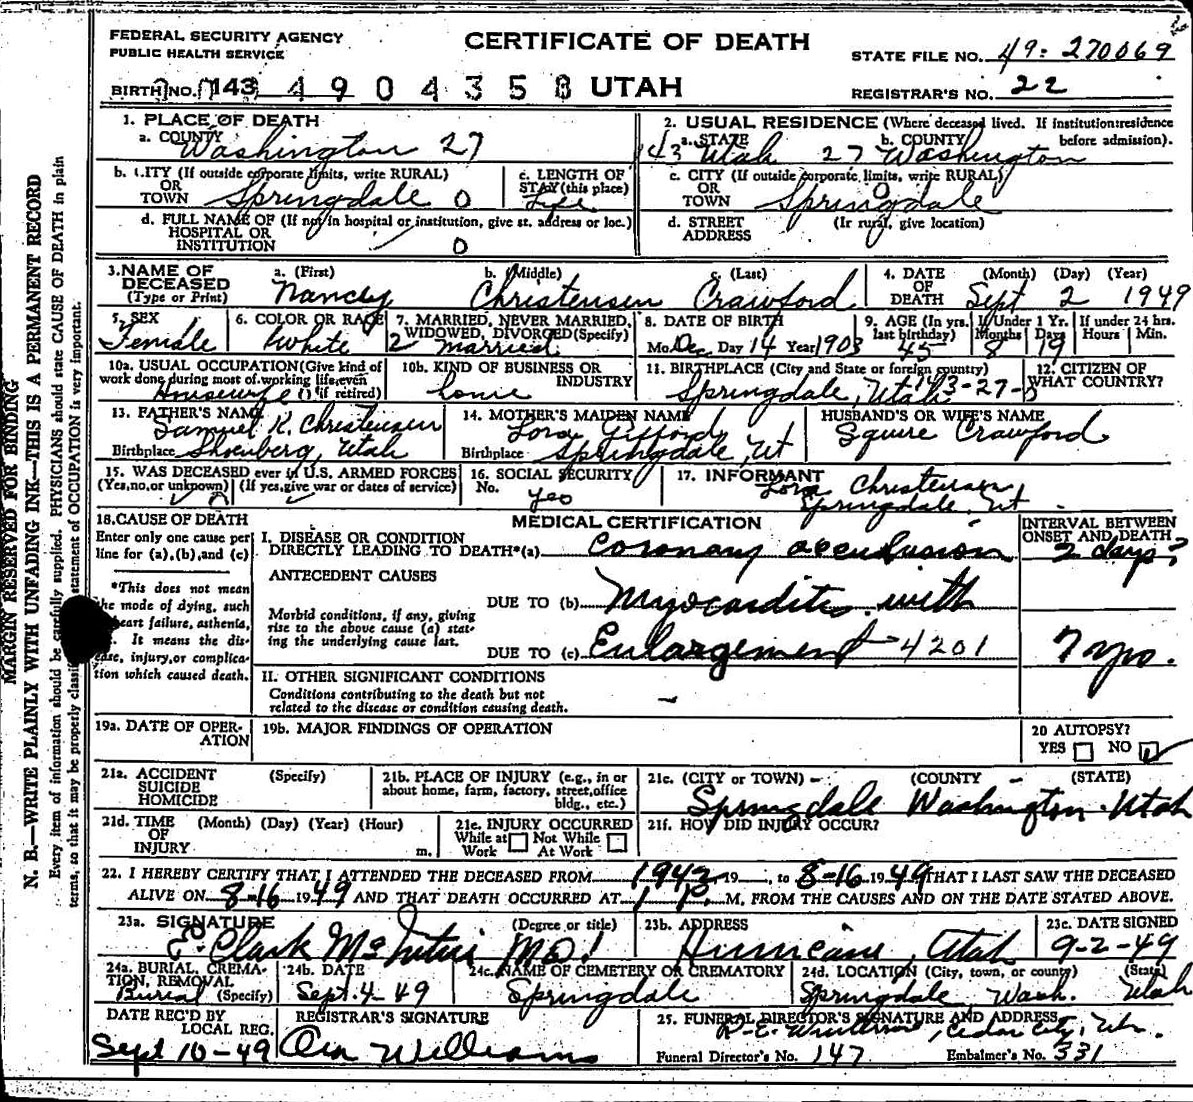 FEDERAL SECURITY AGENCY
PUBLIC HEALTH SERVICE
CERTIFICATE OF DEATH
STATE FILE NO. 49-270069
BIRTH NO. 143 4904358 UTAH
REGISTRAR'S NO. 22
1. PLACE OF DEATH
a. COUNTY Washington 27
b. CITY (If outside corporate limits, write RURAL) OR TOWN Springdale 0
c. LENGTH OF STAY (this place) Life
d. FULL NAME OF (If not in hospital or institution, give st. address or loc.) HOSPITAL OR INSTITUTION 0
2. USUAL RESIDENCE (Where deceased lived. If institution: residence before admission).
a. STATE 143 Utah b. COUNTY 27 Washington
c. CITY (If outside corporate limits, write RURAL) OR TOWN Springdale
d. STREET ADDRESS (If rural, give location)
3. NAME OF DECEASED (Type or Print) a. (First) Nancy b. (Middle) Christensen c. (Last) Crawford
4. DATE OF DEATH (Month) (Day) (Year) Sept 2 1949
5. SEX Female
6. COLOR OR RACE White
7. MARRIED, NEVER MARRIED, WIDOWED, DIVORCED (Specify) 2 married
8. DATE OF BIRTH Mo. Dec Day 14 Year 1903
9. AGE (In yrs. last birthday) 45 If Under 1 Yr. Months 8 Days 19 If under 24 hrs. Hours Min.
10a. USUAL OCCUPATION (Give kind of work done during most of working life, even if retired) Housewife
10b. KIND OF BUSINESS OR INDUSTRY
11. BIRTHPLACE (City and State or foreign country) Springdale, Utah 143-27-0
12. CITIZEN OF WHAT COUNTRY?
13. FATHER'S NAME Samuel K. Christensen
Birthplace Utah
14. MOTHER'S MAIDEN NAME Lora Gifford
Birthplace Springdale, Ut
HUSBAND'S OR WIFE'S NAME Squire Crawford
15. WAS DECEASED ever in U.S. ARMED FORCES
(Yes, no, or unknown) (If yes, give war or dates of service)
16. SOCIAL SECURITY No. yes
17. INFORMANT Lora Christensen
Springdale, Ut
18. CAUSE OF DEATH
Enter only one cause per line for (a), (b), and (c)
*This does not mean the mode of dying, such heart failure, asthenia, It means the disease, injury, or complication which caused death.
MEDICAL CERTIFICATION
INTERVAL BETWEEN ONSET AND DEATH
I. DISEASE OR CONDITION DIRECTLY LEADING TO DEATH*(a) Coronary occulusion 2 days?
ANTECEDENT CAUSES
Morbid conditions, if any, giving rise to the above cause (a) stating the underlying cause last.
DUE TO (b) Myocarditis with
DUE TO (c) Enlargement 4201 7 yrs.
II. OTHER SIGNIFICANT CONDITIONS
Conditions contributing to the death but not related to the disease or condition causing death. -
19a. DATE OF OPERATION
19b. MAJOR FINDINGS OF OPERATION
20 AUTOPSY?
YES NO
21a. ACCIDENT SUICIDE HOMICIDE (Specify)
21b. PLACE OF INJURY (e.g., in or about home, farm, factory, street, office bldg., etc.)
21c. (CITY or TOWN) (COUNTY (STATE)
Springdale Washington Utah
21d. TIME OF INJURY (Month) (Day) (Year) (Hour) m.
21e. INJURY OCCURRED While at Work Not While At Work
21f. HOW DID INJURY OCCUR?
22. I HEREBY CERTIFY THAT I ATTENDED THE DECEASED FROM 1943, 19, to 8-16 1949 THAT I LAST SAW THE DECEASED
ALIVE ON 8-16 1949 AND THAT DEATH OCCURRED AT 1 P. M. FROM THE CAUSES AND ON THE DATE STATED ABOVE.
23a. SIGNATURE (Degree or title) Clark McIntire MD
23b. ADDRESS Hurricane, Utah
23c. DATE SIGNED 9-2-49
24a. BURIAL, CREMATION, REMOVAL (Specify) Burial
24b. DATE Sept. 4-49
24c. NAME OF CEMETERY OR CREMATORY Springdale
24d. LOCATION (City, town, or county) (State) Springdale, Wash. Utah
DATE REC'D BY LOCAL REG. Sept 10-49
REGISTRAR'S SIGNATURE Ora Williams
25. FUNERAL DIRECTOR'S SIGNATURE AND ADDRESS Cedar City, Ut.
Funeral Director's No. 147 Embalmer's No. 331
MARGIN RESERVED FOR BINDING
N. B.—WRITE PLAINLY WITH UNFADING INK—THIS IS A PERMANENT RECORD
Every item of information should be carefully supplied. PHYSICIANS should state CAUSE OF DEATH in plain
terms, so that it may be properly classi statement of OCCUPATION is very important.